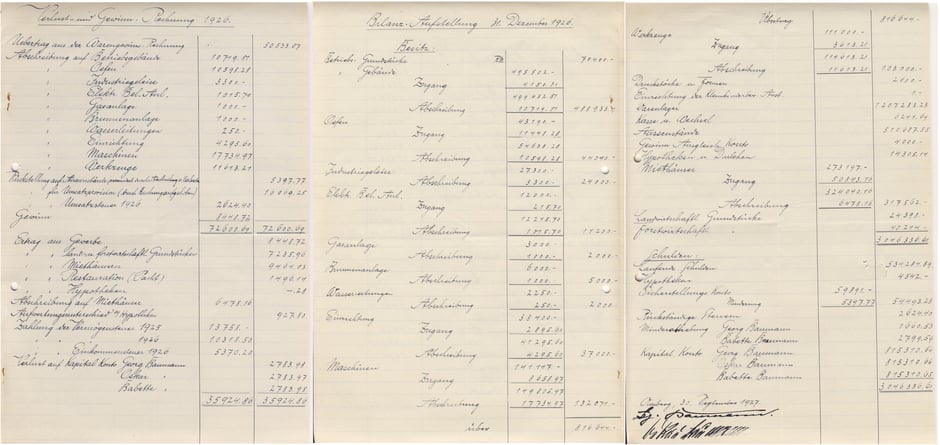 Verlust- und Gewinn-Rechnung 1926.
Uebertrag aus der Warengewinn-Rechnung 50533.07
Abschreibung auf Betriebsgebäude 10719.51
" Oefen 10598.28
" Industriegeleise 3300.-
" Elektr. Bel. Anl. 1015.70
" Gasanlage 1000.-
" Brunnenanlage 1000.-
" Wasserleitungen 250.-
" Einrichtung 4295.60
" Maschinen 17734.97
" Werkzeuge 11613.21
5397.77
für Umsatzprovision
" Umsatzsteuer 1926 2624.40
Gewinn 1448.72
72600.69 72600.69
Ertrag aus Gewerbe 1448.72
" " landw. forstwirtschaftl. Grundstücke 7235.96
" " Miethäusern 9464.03
" " Restauration (Pacht) 1490.14
" " Hypotheken -.28
Abschreibung auf Miethäuser 6478.16
Aufwertungsunterschied a/ Hypotheken 927.80
Zahlung der Vermögensteuer 1925 13758.-
" " 1926 10318.50
" " Einkommensteuer 1926 5370.20
Verlust auf Kapital Konto Georg Baumann 2783.98
" Oskar " 2783.97
" Babette " 2783.98
35924.86 35924.86
Bilanz-Aufstellung 31. Dezember 1926.
Besitz:
Betriebs-Grundstücke 70400.-
" Gebäude 495502.-
Zugang 4150.51
499652.51
Abschreibung 10719.51 488933.-
Oefen 43190.-
Zugang 11448.28
54638.28
Abschreibung 10598.28 44040.-
Industriegeleise 27300.-
Abschreibung 3300.- 24000.-
Elektr. Bel. Anl. 12000.-
Zugang 215.70
12215.70
Abschreibung 1015.70 11200.-
Gasanlage 3000.-
Abschreibung 1000.- 2000.-
Brunnenanlage 6000.-
Abschreibung 1000.- 5000.-
Wasserleitungen 2250.-
Abschreibung 250.- 2000.-
Einrichtung 38400.-
Zugang 2895.60
41295.60
Abschreibung 4295.60 37000.-
Maschinen 141147.-
Zugang 8658.97
149805.97
Abschreibung 17734.97 132071.-
über 816644.-
Übertrag 816644.-
Werkzeuge 111000.-
Zugang 3613.21
114613.21
Abschreibung 11613.21 103000.-
Druckstöcke u. Formen 2000.-
Warenlager 1207283.23
Kasse u. Wechsel 6241.64
Aussenstände
Gewinn Ausgleich Konto
Hypotheken u. Darlehen 14305.14
Miethäuser 273197.-
Zugang 50843.16
324040.16
Abschreibung 6478.16 317562.-
Landwirtschaftl. Grundstücke 24393.-
Forstwirtschaftl. " 40244.-
3046336.61
Schulden:
Laufende Schulden 534284.89
Hypotheken 4542.-
Sicherstellungs Konto 59891.-
Minderung 5397.77 54493.23
Rückständige Steuern 2624.40
Georg Baumann 1660.53
Babette Baumann 2799.54
Kapital Konto Georg Baumann
Oskar Baumann
Babette Baumann
3046336.61
Amberg, 30. September 1927.